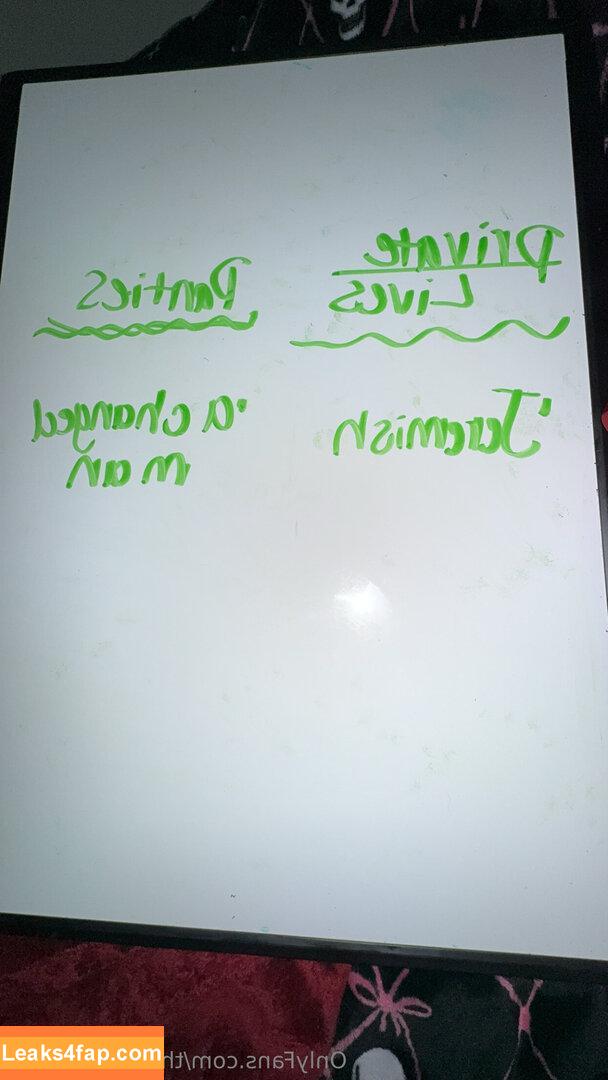 Private
Lives
'Jeremish
Panties
'a changed
man
Leaks4fap.com
OnlyFans.com/th